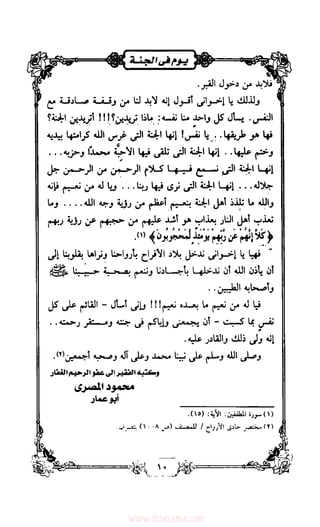 يوم في الجنة
فلابد من دخول القبر.
ولذلك يا إخواني أقول إنه لابد لنا من وقفة صادقة مع
النفس. يسأل كل واحد منا نفسه: ماذا تريدين؟!!! أتريدين الجنة؟
فها هو طريقها.. يا نفس! إنها الجنة التي غرس الله كرامتها بيديه
وختم عليها.. إنها الجنة التي تلقى فيها الأحبة محمداً وحزبه...
إنها الجنة التي تسمع فيها كلام الرحمن من الرحمن جل
جلاله... إنها الجنة التي ترى فيها ربنا.. ويا له من نعيم فإنه
والله ما تلذذ أهل الجنة بنعيم أعظم من رؤية وجه الله.... وما
تعذب أهل النار بعذاب هو أشد عليهم من حجبهم عن رؤية ربهم
﴿كَلَّا إِنَّهُمْ عَن رَّبِّهِمْ يَوْمَئِذٍ لَّمَحْجُوبُونَ﴾(١).
فهيا يا إخواني ندخل بلاد الأفراح بأرواحنا ونراها بقلوبنا إلى
أن يأذن الله أن ندخلها بأجسادنا وننعم بصحبة حبيبنا ﷺ
وأصحابه الطيبين..
فيا له من نعيم ما بعده نعيم!!! وإني أسأل - القائم على كل
نفس بما كسبت - أن يجمعني وإياكم في جنته ومستقر رحمته..
إنه ولي ذلك والقادر عليه.
وصلى الله وسلم على نبينا محمد وعلى آله وصحبه أجمعين(٢).
وكتبه الفقير إلى عفو الرحيم الغفار
محمود المصري
أبو عمار
(١) سورة المطففين: الآية: (١٥).
(٢) مختصر حادي الأرواح / للمصنف (ص ٨-١٠) بتصرف.
١٠
www.ibtesama.com